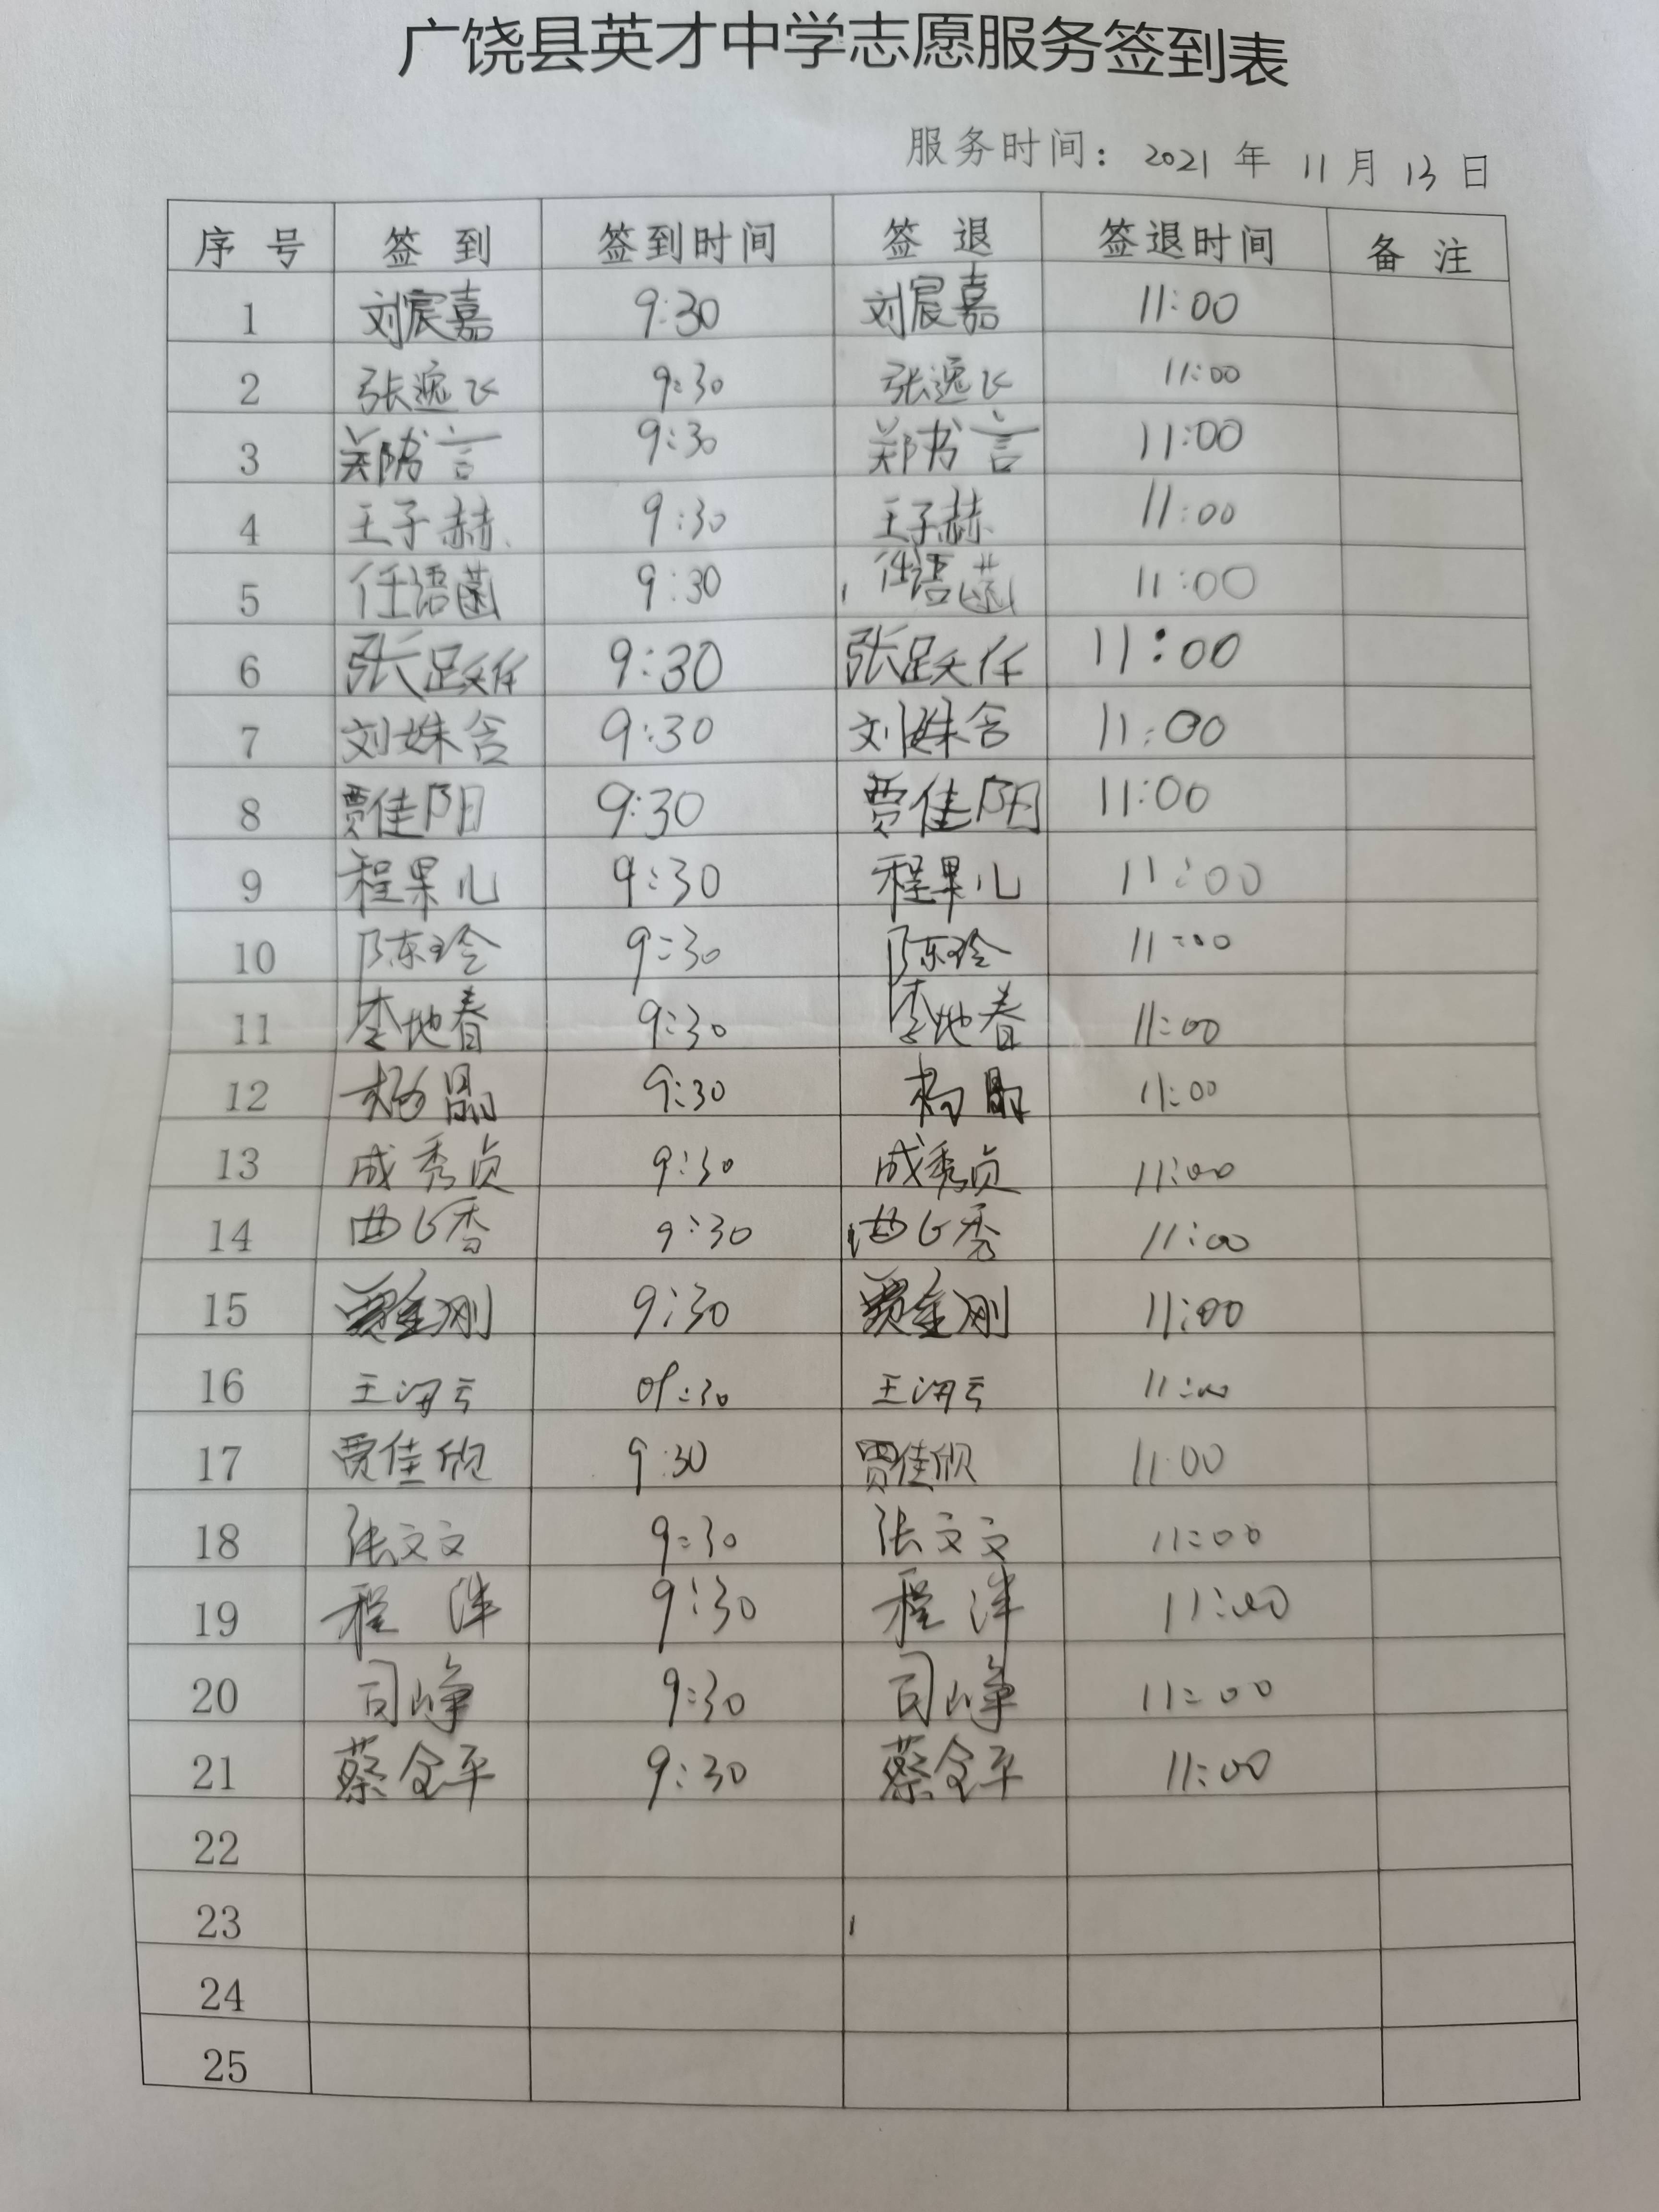 广饶县英才中学志愿服务签到表
服务时间: 2021 年 11 月 13 日
序号 签到 签到时间 签退 签退时间 备注
1 刘宸嘉 9:30 刘宸嘉 11:00
2 张逸飞 9:30 张逸飞 11:00
3 郑书言 9:30 郑书言 11:00
4 王子赫 9:30 王子赫 11:00
5 任语菡 9:30 任语菡 11:00
6 张跃仟 9:30 张跃仟 11:00
7 刘姝含 9:30 刘姝含 11:00
8 贾佳阳 9:30 贾佳阳 11:00
9 程果儿 9:30 程果儿 11:00
10 陈玲 9:30 陈玲 11:00
11 李地春 9:30 李地春 11:00
12 杨晶 9:30 杨晶 11:00
13 成秀贞 9:30 成秀贞 11:00
14 9:30 11:00
15 贾金刚 9:30 贾金刚 11:00
16 09:30 11:00
17 贾佳欣 9:30 贾佳欣 11:00
18 张文文 9:30 张文文 11:00
19 程洋 9:30 程洋 11:00
20 司峥 9:30 司峥 11:00
21 蔡全平 9:30 蔡全平 11:00
22
23
24
25